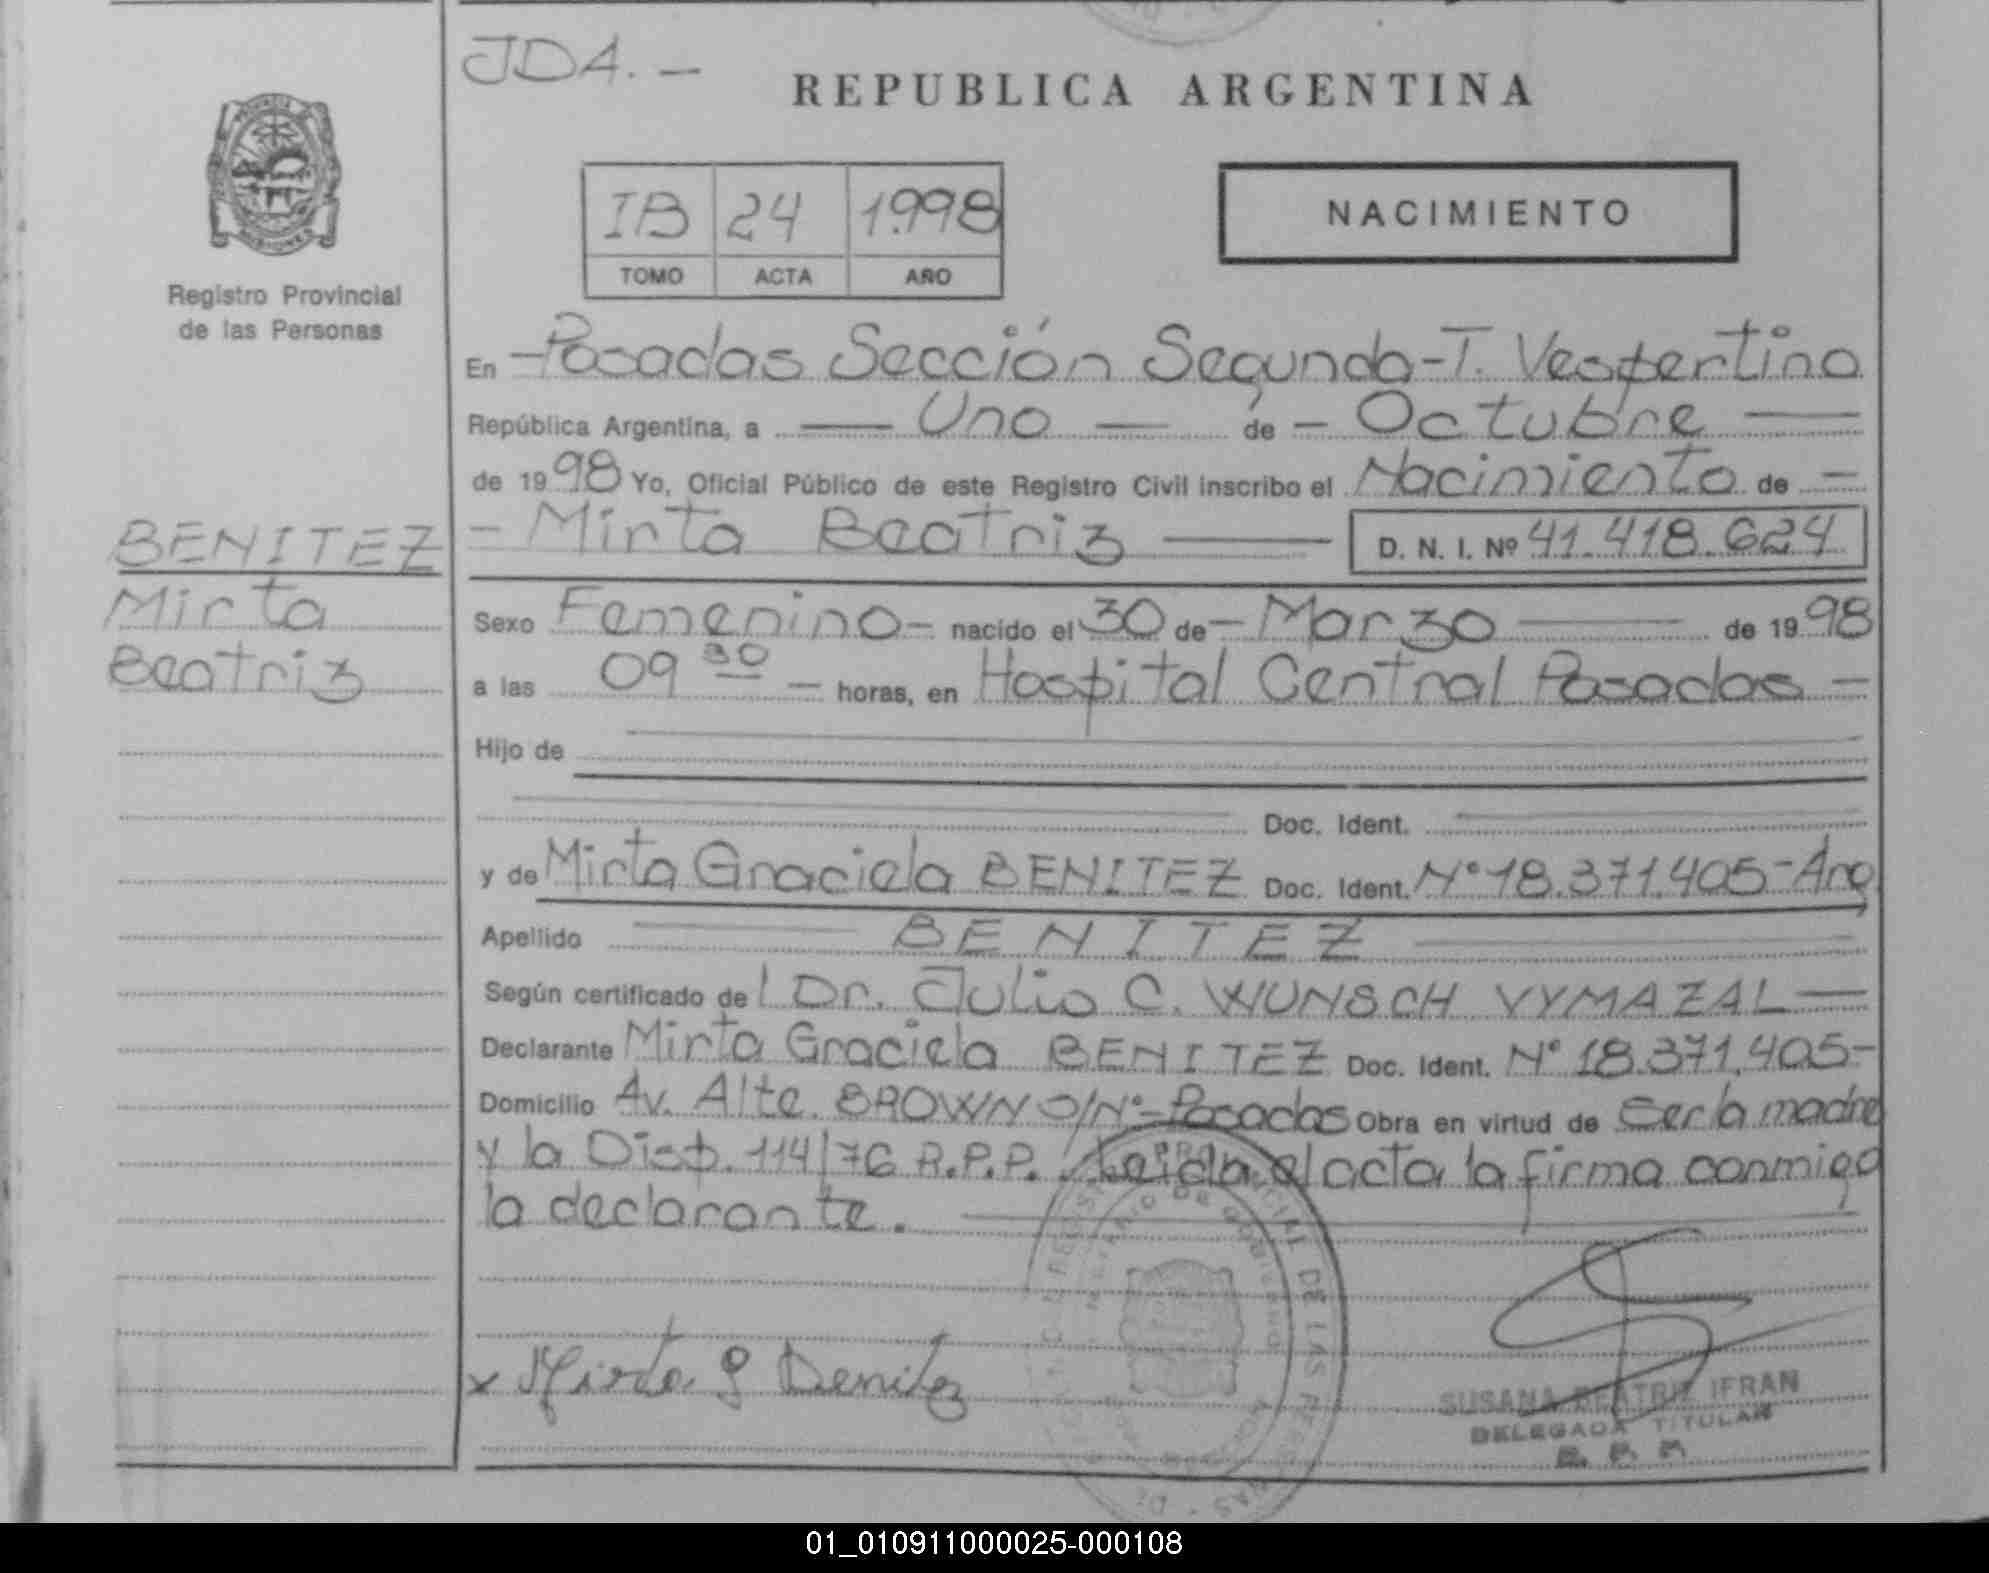 JDA.-
REPUBLICA ARGENTINA
IB 24 1.998
TOMO ACTA AÑO
NACIMIENTO
PROVINCIA DE MISIONES
Registro Provincial
de las Personas
BENITEZ
Mirta
Beatriz
En -Posadas Sección Segunda-T. Vespertino
República Argentina, a — Uno — de - Octubre —
de 1998 Yo, Oficial Público de este Registro Civil inscribo el Nacimiento de -
- Mirta Beatriz — D. N. I. Nº 41.418.624
Sexo Femenino - nacido el 30 de - Marzo — de 1998
a las 09 30 - horas, en Hospital Central Posadas -
Hijo de —
— Doc. Ident. —
y de Mirta Graciela BENITEZ Doc. Ident. Nº 18.371.405-Arg
Apellido — BENITEZ —
Según certificado del Dr. Julio C. WUNSCH VYMAZAL —
Declarante Mirta Graciela BENITEZ Doc. Ident. Nº 18.371.405-
Domicilio Av. Alte. BROWN S/Nº-Posadas Obra en virtud de ser la madre
y la Disp. 114/76 R.P.P. Leída el acta la firma conmigo
la declarante.
REGISTRO PROVINCIAL DE LAS PERSONAS
x Mirta G Benitez
SUSANA BEATRIZ IFRAN
DELEGADA TITULAR
R. P. P.
01_010911000025-000108